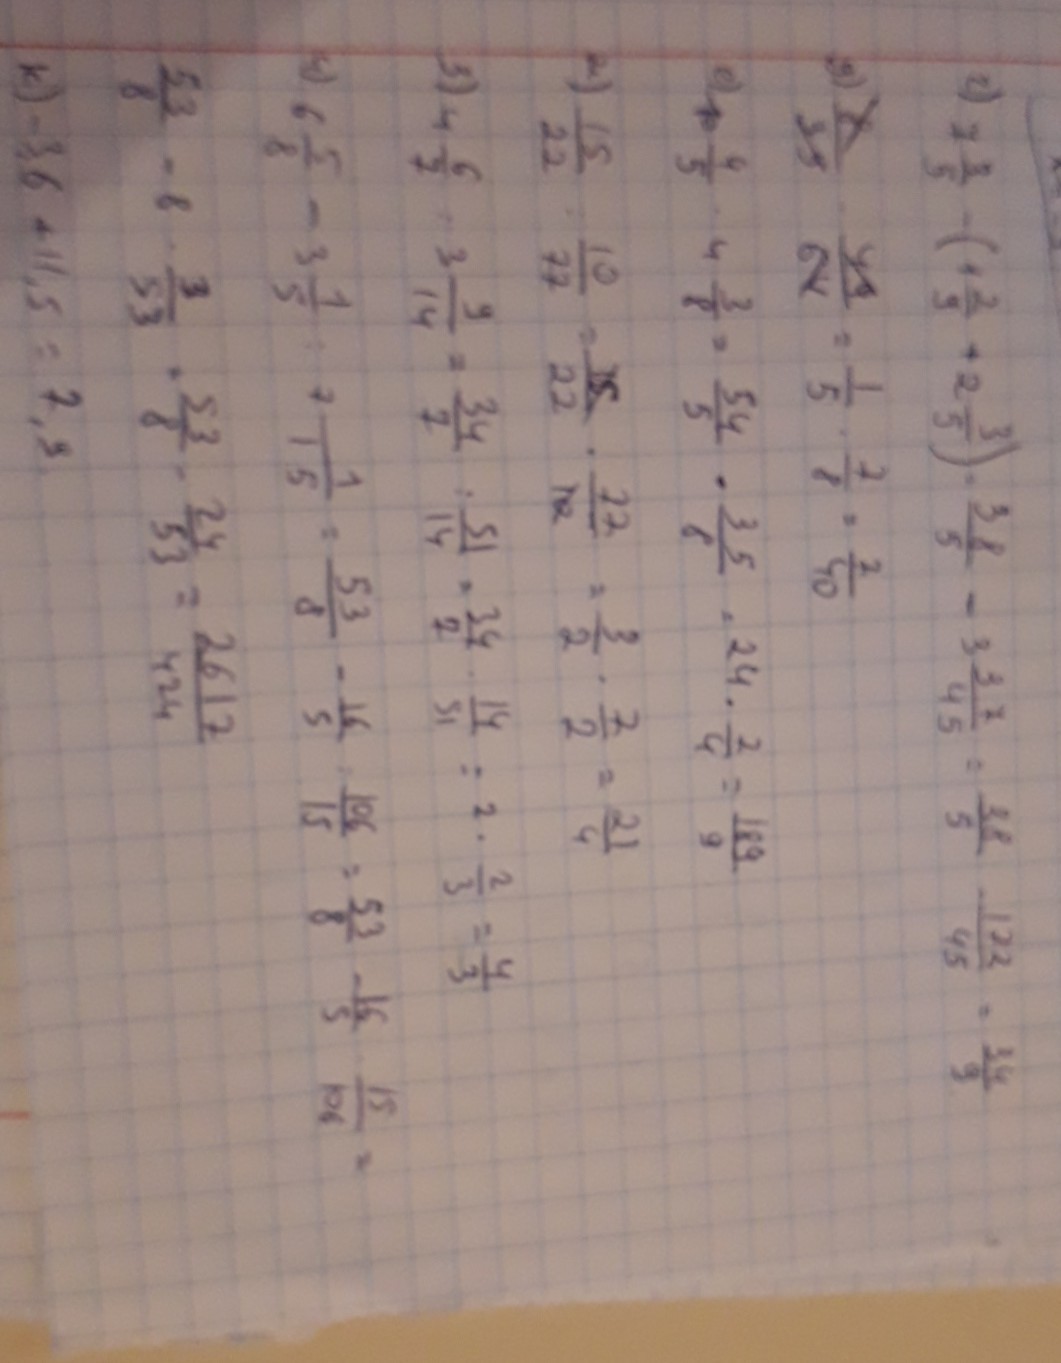 г) 7 3/5 - (1 2/9 + 2 3/5) = 38/5 - 3 37/45 = 38/5 - 172/45 = 34/9
= 1/5 · 7/8 = 7/40
е) 4/5 · 4 3/8 = 54/5 · 35/8 = 24 · 7/4 = 189/9
ж) 15/22 : 10/77 = 15/22 · 77/10 = 3/2 · 7/2 = 21/4
з) 4 6/7 : 3 9/14 = 34/7 : 51/14 = 34/7 · 14/51 = 2 · 2/3 = 4/3
и) 6 5/8 - 3 1/5 : 7 1/15 = 53/8 - 16/5 : 106/15 = 53/8 - 16/5 · 15/106 =
53/8 - 8 · 3/53 = 53/8 - 24/53 = 2617/424
к) -3,6 + 11,5 = 7,9